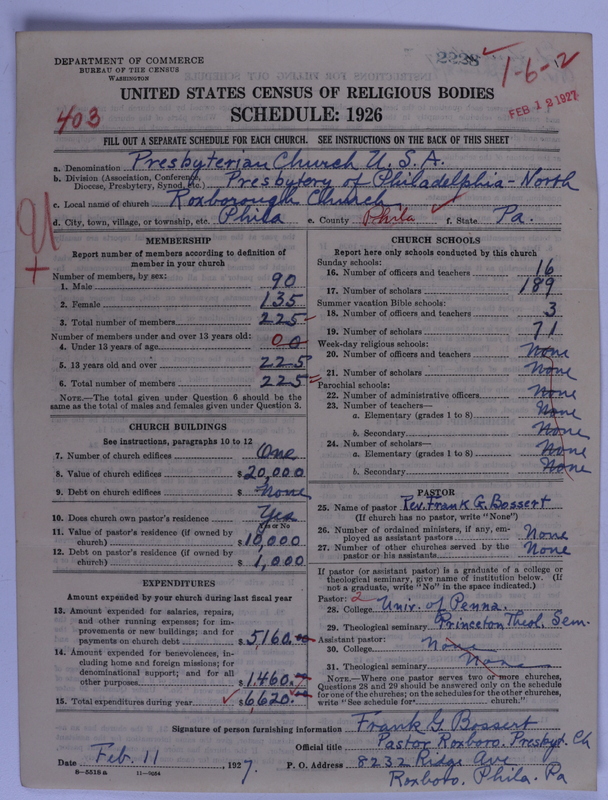 DEPARTMENT OF COMMERCE
BUREAU OF THE CENSUS
WASHINGTON
2228
1-6-2
UNITED STATES CENSUS OF RELIGIOUS BODIES
SCHEDULE: 1926
403
FEB 12 1927
FILL OUT A SEPARATE SCHEDULE FOR EACH CHURCH. SEE INSTRUCTIONS ON THE BACK OF THIS SHEET
a. Denomination Presbyterian Church U.S.A.
b. Division (Association, Conference, Diocese, Presbytery, Synod, etc.) Presbytery of Philadelphia-North
c. Local name of church Roxborough Church
d. City, town, village, or township, etc. Phila e. County Phila f. State Pa.
MEMBERSHIP
Report number of members according to definition of member in your church
Number of members, by sex:
1. Male 90
2. Female 135
3. Total number of members 225
Number of members under and over 13 years old:
4. Under 13 years of age 0
5. 13 years old and over 225
6. Total number of members 225
NOTE.—The total given under Question 6 should be the same as the total of males and females given under Question 3.
CHURCH BUILDINGS
See instructions, paragraphs 10 to 12
7. Number of church edifices One
8. Value of church edifices $20,000
9. Debt on church edifices $ none
10. Does church own pastor's residence Yes
Yes or No
11. Value of pastor's residence (if owned by church) $10,000
12. Debt on pastor's residence (if owned by church) $1,000
EXPENDITURES
Amount expended by your church during last fiscal year
13. Amount expended for salaries, repairs, and other running expenses; for improvements or new buildings; and for payments on church debt $5,160.
14. Amount expended for benevolences, including home and foreign missions; for denominational support; and for all other purposes $1,460.
15. Total expenditures during year $6,620.
CHURCH SCHOOLS
Report here only schools conducted by this church
Sunday schools:
16. Number of officers and teachers 16
17. Number of scholars 189
Summer vacation Bible schools:
18. Number of officers and teachers 3
19. Number of scholars 71
Week-day religious schools:
20. Number of officers and teachers None
21. Number of scholars None
Parochial schools:
22. Number of administrative officers None
23. Number of teachers—
a. Elementary (grades 1 to 8) None
b. Secondary None
24. Number of scholars—
a. Elementary (grades 1 to 8) None
b. Secondary None
PASTOR
25. Name of pastor Rev. Frank G. Bossert
(If church has no pastor, write "None")
26. Number of ordained ministers, if any, employed as assistant pastors None
27. Number of other churches served by the pastor or his assistants None
If pastor (or assistant pastor) is a graduate of a college or theological seminary, give name of institution below. (If not a graduate, write "No" in the space indicated.)
Pastor: 2
28. College Univ. of Penna.
29. Theological seminary Princeton Theol. Sem.
Assistant pastor:
30. College None
31. Theological seminary None
NOTE.—Where one pastor serves two or more churches, Questions 28 and 29 should be answered only on the schedule for one of the churches; on the schedules for the other churches, write "See schedule for church."
Signature of person furnishing information Frank G Bossert
Official title Pastor Roxboro. Presbyt. Ch
Date Feb. 11, 1927. P. O. Address 8232 Ridge Ave
Roxboro, Phila. Pa
8-5518a 11-9084